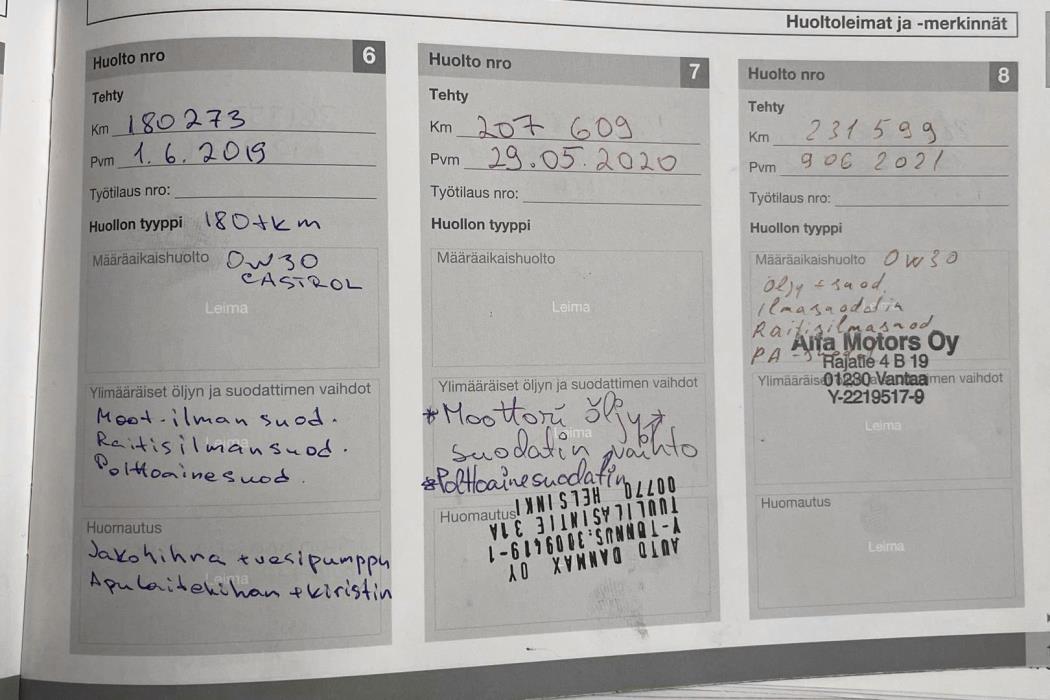 Huoltoleimat ja -merkinnät
Huolto nro 6
Tehty
Km 180 273
Pvm 1. 6. 2019
Työtilaus nro:
Huollon tyyppi 180tkm
Määräaikaishuolto 0W30
CASTROL
Leima
Ylimääräiset öljyn ja suodattimen vaihdot
Moot.ilman suod.
Raitisilman suod.
Leima
Polttoainesuod.
Huomautus
Jakohihna + vesipumppu
Apulaitehihan + kiristin
Leima
Huolto nro 7
Tehty
Km 207 609
Pvm 29.05.2020
Työtilaus nro:
Huollon tyyppi
Määräaikaishuolto
Leima
Ylimääräiset öljyn ja suodattimen vaihdot
* Moottori öljy +
Leima
suodatin vaihto
* Polttoainesuodatin
Huomautus
AUTO DANMAX OY
Y-TUNNUS:3009419-1
TUULILASINTIE 31A
00770 HELSINKI
Huolto nro 8
Tehty
Km 231 599
Pvm 9 06 2021
Työtilaus nro:
Huollon tyyppi
Määräaikaishuolto 0W30
Öljy + suod.
Ilmasuodatin
Raitisilmasuod
PA -
Alfa Motors Oy
Rajatie 4 B 19
01230 Vantaa
Y-2219517-9
Ylimääräise men vaihdot
Leima
Huomautus
Leima